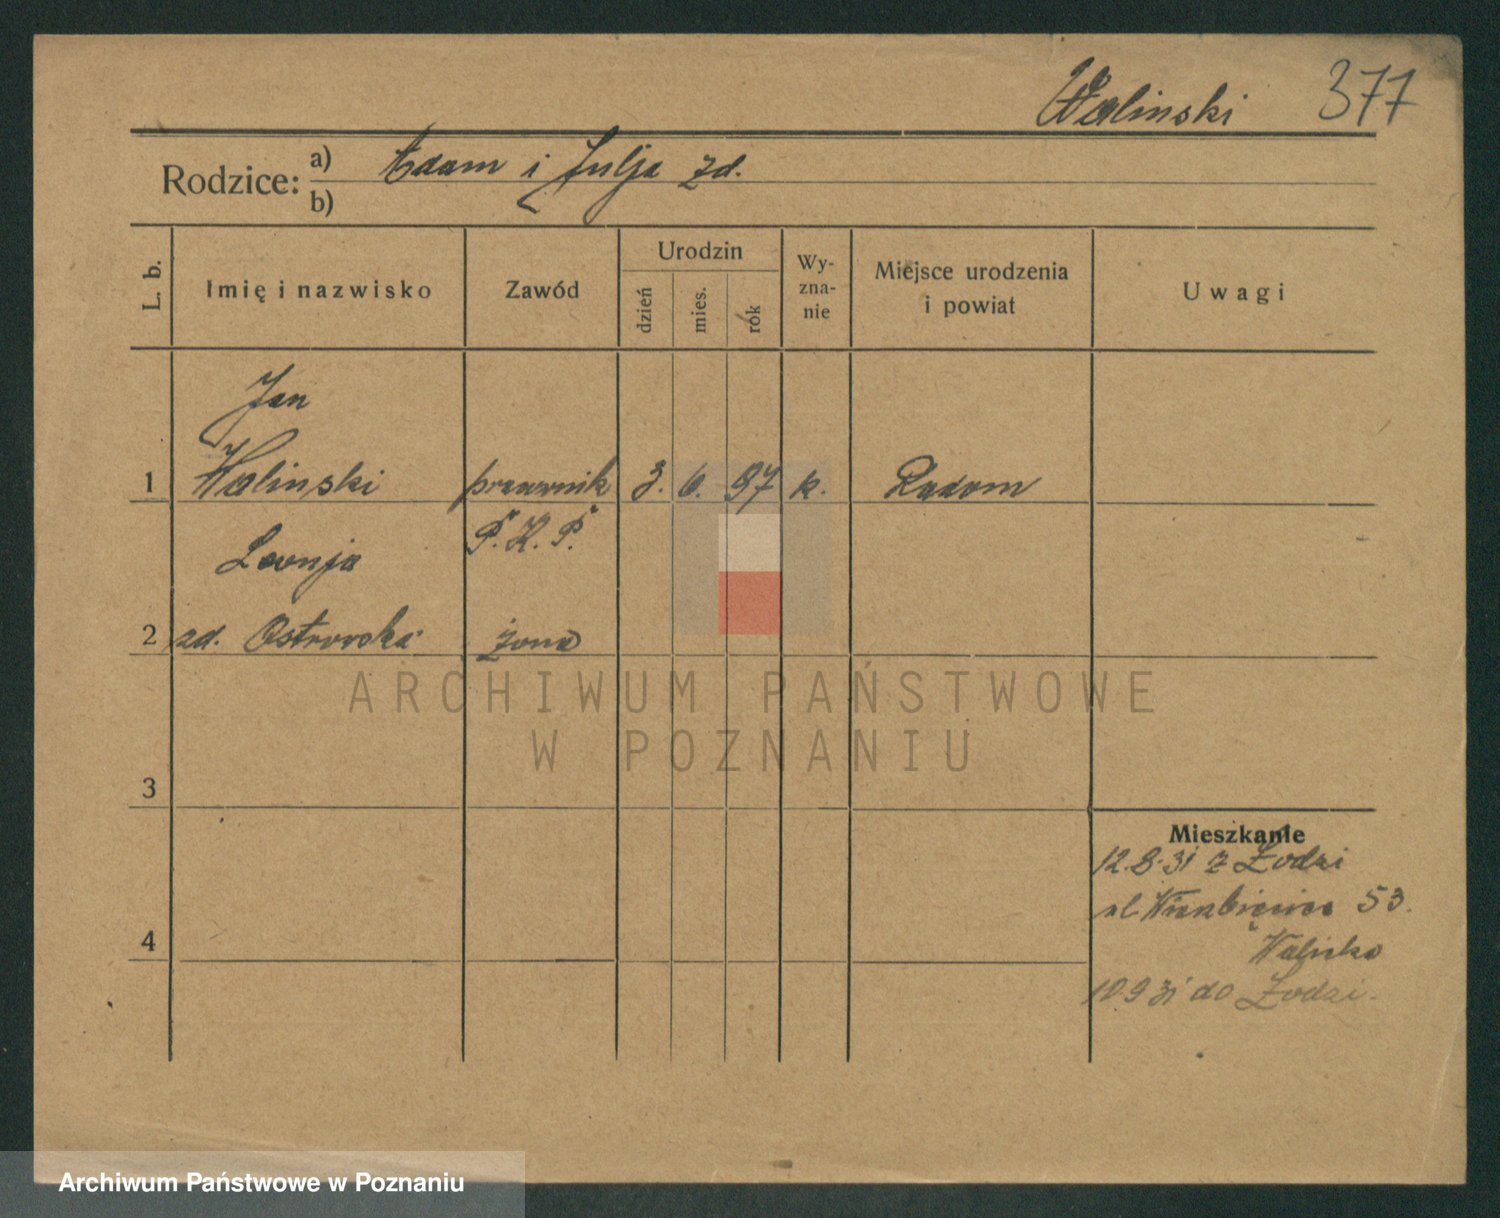 Walinski 377
Rodzice: a) Adam i Julja zd.
b)
L. b.
Imię i nazwisko
Zawód
Urodzin
dzień
mies.
rok
Wy-
zna-
nie
Miejsce urodzenia
i powiat
Uwagi
Jan
1 Walinski prawnik 3. 6. 97 k. Radom
P. K. P.
Leonja
2 zd. Ostrowska żona
3
4
Mieszkanie
12.8.31 z Łodzi
ul 53.
10 9 31 do Łodzi.
ARCHIWUM PAŃSTWOWE
W POZNANIU
Archiwum Państwowe w Poznaniu